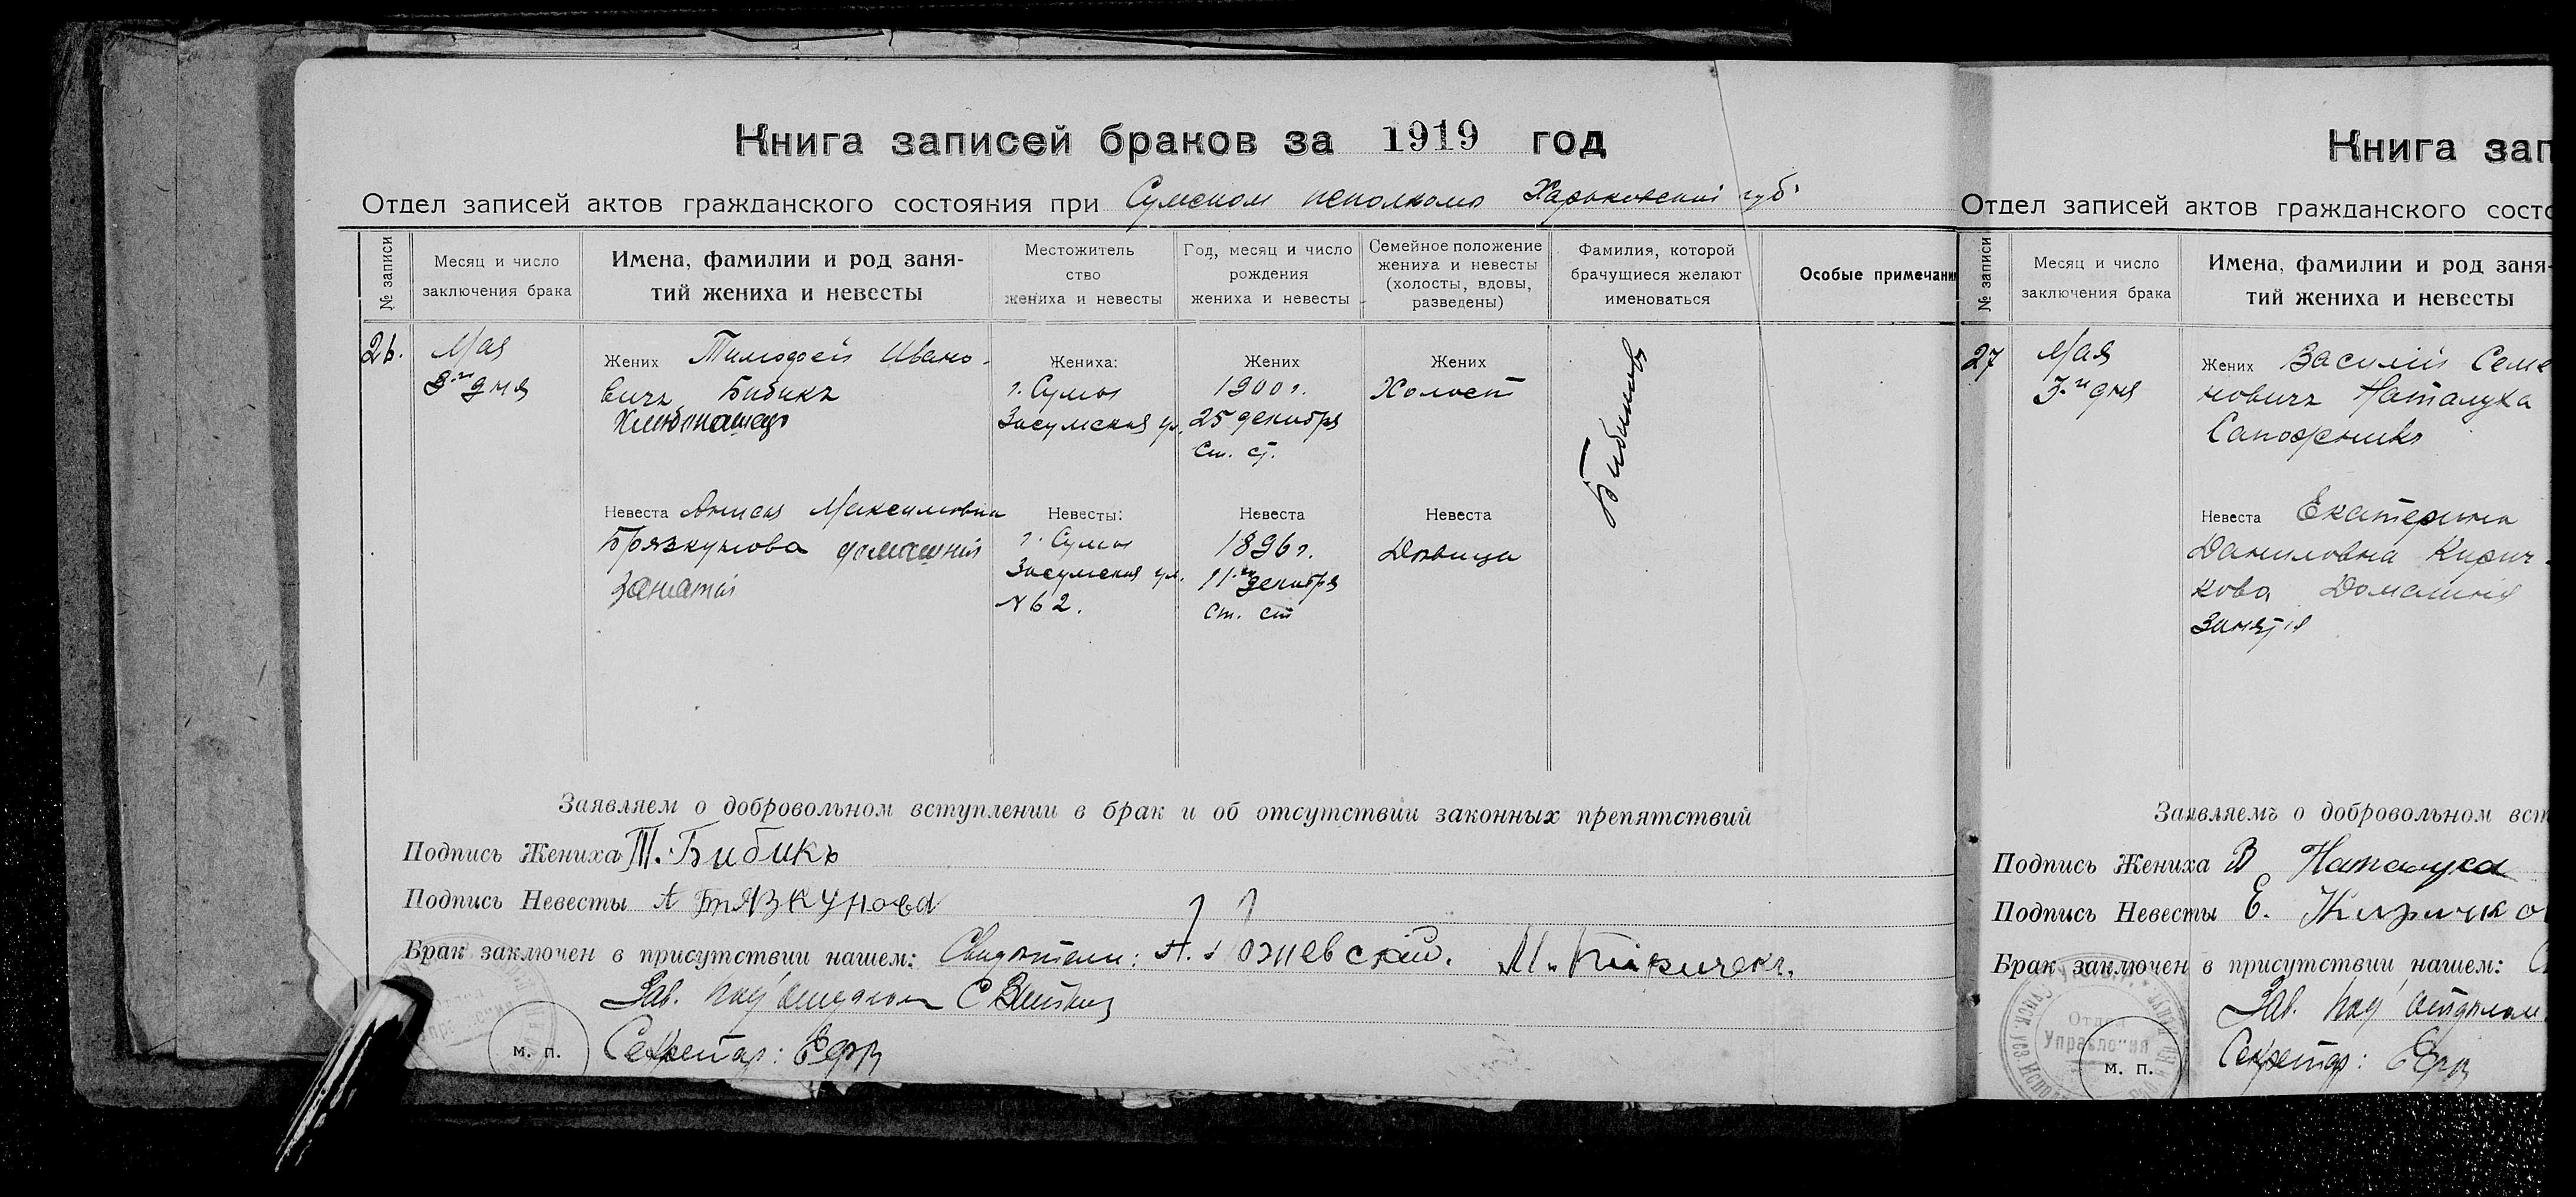 Книга записей браков за 1919 год
Отдел записей актов гражданского состояния при Сумском исполкоме Харьковской губ.
№ записи
Месяц и число
заключения брака
Имена, фамилии и род заня-
тий жениха и невесты
Местожитель
ство
жениха и невесты
Год, месяц и число
рождения
жениха и невесты
Семейное положение
жениха и невесты
(холосты, вдовы,
разведены)
Фамилия, которой
брачущиеся желают
именоваться
Особые примечани
26.
Мая
дня
Жених Тимофей Ивано-
вичъ Бибикъ
Хлѣбопашецъ
Жениха:
г. Сумы
Засумская ул.
Жених
1900 г.
25 декабря
Ст. ст.
Жених
Холост
Бибиковъ
Невеста Анисья Максимовна
Брязкунова домашнія
занятія
Невесты:
г. Сумы
Засумская ул.
№ 62.
Невеста
1896 г.
11го декабря
Ст. ст
Невеста
Дѣвица
Заявляем о добровольном вступлении в брак и об отсутствии законных препятствий
Подпись Жениха Т. Бибикъ
Подпись Невесты А Брязкунова
Брак заключен в присутствии нашем: Свидѣтели: А. М.
Зав. под'отделом
Секретар:
м. п.
Книга зап
Отдел записей актов гражданского состо
№ записи
Месяц и число
заключения брака
Имена, фамилии и род заня-
тий жениха и невесты
27
Мая
3-го дня
Жених Василій Семе
новичъ Наталуха
Сапожникъ
Невеста Екатерина
Даниловна Кирич-
кова Домашнія
Занятія
Заявляемъ о добровольном вст
Подпись Жениха В Наталуха
Подпись Невесты Е. Киричко
Брак заключен в присутствии нашем: С
Зав. под' отделом
Секретар:
Отдел
Управления
м. п.